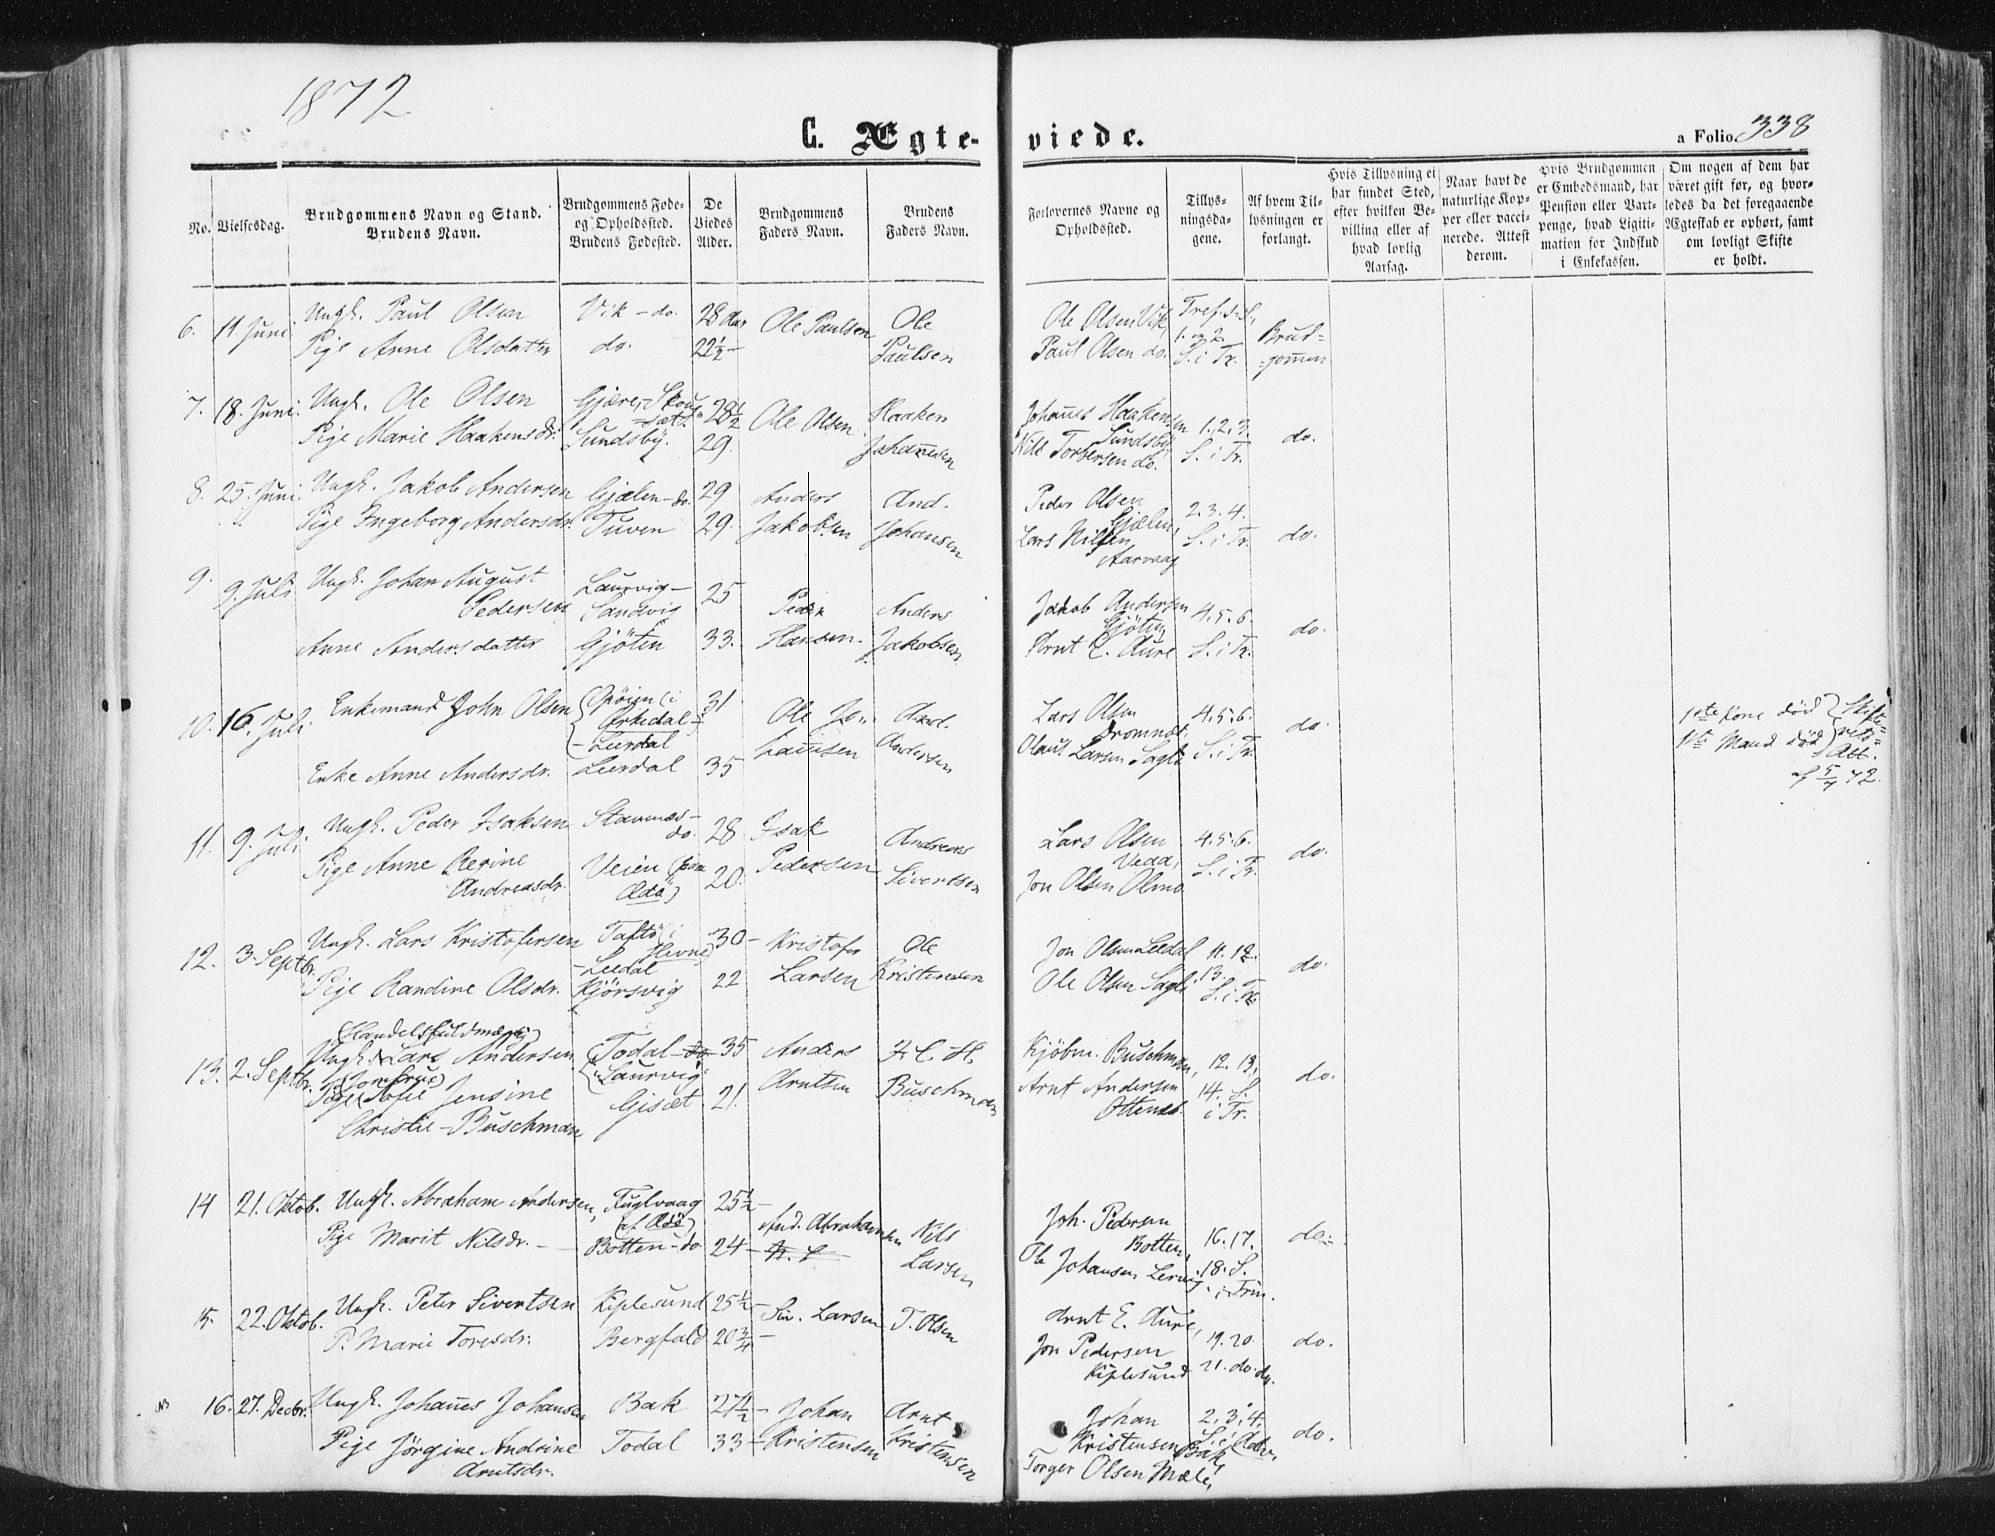 1872
C. Ægte-
viede.
a Folio 338
No.
Vielsesdag.
Brudgommens Navn og Stand.
Brudens Navn.
Brudgommens Føde-
og Opholdssted.
Brudens Fødested.
De
Viedes
Alder.
Brudgommens
Faders Navn.
Brudens
Faders Navn.
Forlovernes Navne og
Opholdssted.
Tillys-
ningsda-
gene.
Af hvem Til-
lysningen er
forlangt.
Hvis Tillysning ei
har fundet Sted,
efter hvilken Be-
villing eller af
hvad lovlig
Aarsag.
Naar havt de
naturlige Kop-
per eller vacci-
nerede. Attest
derom.
Hvis Brudgommen
er Embedsmand, har
Pension eller Vart-
penge, hvad Ligiti-
mation for Indskud
i Enkekassen.
Om nogen af dem har
været gift før, og hvor-
ledes da det foregaaende
Ægteskab er ophørt, samt
om lovligt Skifte
er holdt.
6. 11 Juni Ungk. Paul Olsen Vik - do. 28 Ole Paulsen Ole Ole Olsen Vik, Tref. S.
Pige Anne Olsdatter do. 22½ - Paulsen Paul Olsen do. 1. 2. S. i Tr. Brud-
gommen
7. 18. Juni. Ungk. Ole Olsen Gjære, Skou- 28½ Ole Olsen Haaken Johannes Haakensen 1. 2. 3.
sæt
Pige Marie Haakensdr. Sundsby. 29. Johannesen Sundsby
Nils Torbersen do. S. i Tr. do.
8. 25. Juni Ungk. Jakob Andersen Gjælen - do. 29 Anders And. Peder Olsen 2. 3. 4.
Pige Ingeborg Andersdr. Tuven 29. Jakobsen Johansen Gjælen,
Lars Nilsen S. i Tr. do.
Aarvaag
9. 9. Juli Ungk. Johan August Laurvig - 25 Peder Anders Jakob Andersen 4. 5. 6.
Pedersen Sandvig Gjøten,
Anne Andersdatter Gjøten 33. Hansen. Jakobsen Arnt E. Aure S. i Tr. do.
10. 16. Juli Enkemand John Olsen (Opøien (i 31 Ole And. Lars Olsen 4. 5. 6. do. 1ste Kone død Skifte-
Orkedal) Dromnæs
- Leerdal Andersen Olaus Larsen Sagli S. i Tr. 1ste Mand død rets-
Enke Anne Andersdr. Leerdal 35 Att.
af 5/7 72.
11. 9. Juli Ungk. Peder Isaksen Stavnæs - 28 Isak Andreas Lars Olsen 4. 5. 6.
do. Vedd,
Pige Anne Serine Veien (paa 20. Pedersen Sivertsen Jon Olsen Olmo S. i Tr. do.
Andreasdr. Ædø)
12. 3. Septbr. Ungk. Lars Kristofersen Taftø (i 30 - Kristofer Ole Jon Olsen Leedal 11. 12.
Hevne)
- Leedal
Pige Randine Olsdr. Kjørsvig 22 Larsen Kristensen Ole Olsen Sagli 13. S. i Tr. do.
13. 2. Septbr. (Handelsfuldmægtig)
Ungk. Lars Andersen Todal - do 35 Anders F. C. H. Kjøbm. Buschman, 12. 13.
(Jomfrue) Laurvig
Pige Sofie Jensine Giset 21. Arntsen Buschman Arnt Andersen 14. S. do.
Christie - Buschman Ottenæs. i Tr.
14 21. Oktob. Ungk. Abraham Andersen, Fuglvaag 25½ - And. Abrahamsen Nils Joh. Pedersen
(af Ædø) Botten, 16. 17. do.
Pige Marit Nilsdr. - Botten - do 24 - Larsen Ole Johansen Lervig. 18. S. i Trin.
15. 22. Oktob. Ungk. Peter Sivertsen Kiplesund 25½ - Siv. Larsen T. Olsen Arnt E. Aure,
P. Marie Toresdr. Bergfald 20¾ - Jon Pedersen 19. 20. do.
Kiplesund 21. do. do.
16. 27. Decbr. Ungk. Johannes Johansen Bak 27½ - Johan Arnt Johan 2. 3. 4.
Pige Jørgine Andrine Todal 33 - Kristensen Kristensen Kristensen Bak S. i Adv. do.
Arntsdr. Torger Olsen Mæle,